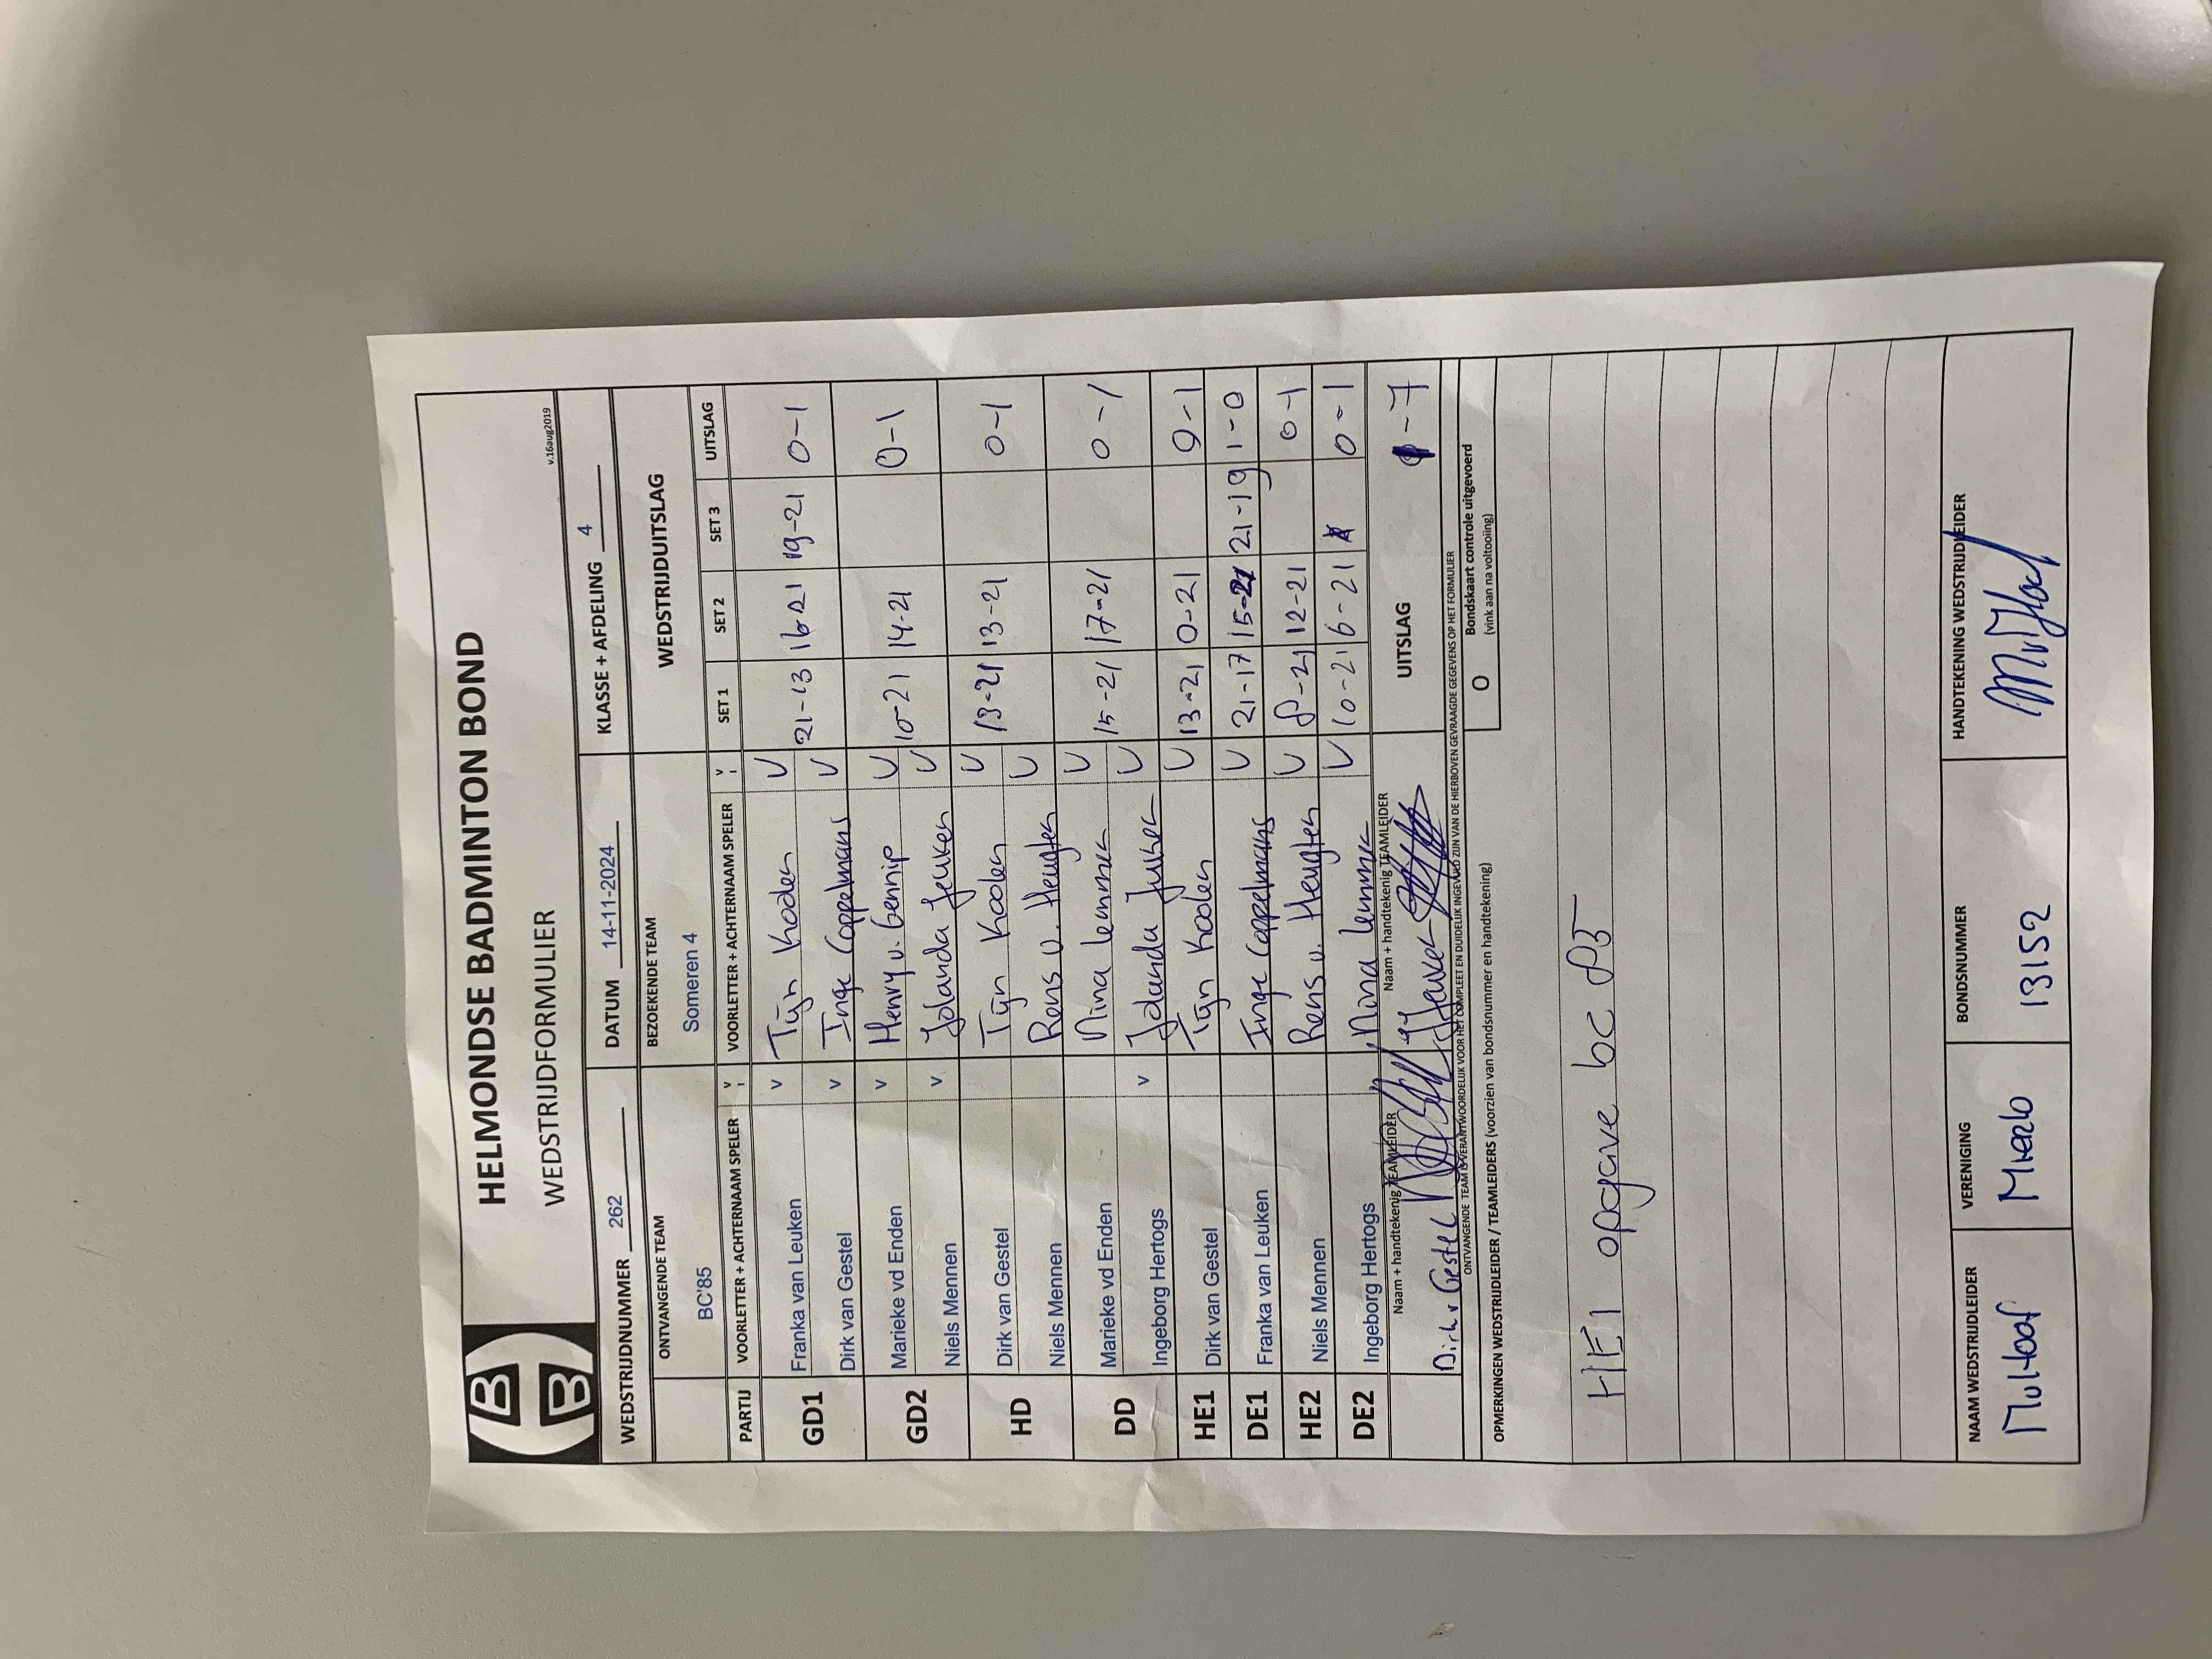 HELMONDSE BADMINTON BOND
WEDSTRIJDFORMULIER
v.16aug2019
WEDSTRIJDNUMMER 262 DATUM 14-11-2024 KLASSE + AFDELING 4
ONTVANGENDE TEAM BEZOEKENDE TEAM WEDSTRIJDUITSLAG
BC'85 Someren 4
PARTIJ VOORLETTER + ACHTERNAAM SPELER V VOORLETTER + ACHTERNAAM SPELER V SET 1 SET 2 SET 3 UITSLAG
GD1 Franka van Leuken v Tijn Koolen V 21-13 16-21 19-21 0-1
Dirk van Gestel v Inge Coppelmans V
GD2 Marieke vd Enden v Henry v. Gennip V 10-21 14-21 0-1
Niels Mennen v Jolanda Jeuken V
HD Dirk van Gestel Tijn Koolen V 13-21 13-21 0-1
Niels Mennen Rens v. Heugten V
DD Marieke vd Enden Nina Lemmen V 15-21 17-21 0-1
Ingeborg Hertogs v Jolanda Jeuken V
HE1 Dirk van Gestel Tijn Koolen V 13-21 0-21 0-1
DE1 Franka van Leuken Inge Coppelmans V 21-17 15-21 21-19 1-0
HE2 Niels Mennen Rens v. Heugten V 8-21 12-21 0-1
DE2 Ingeborg Hertogs Nina Lemmen V 10-21 6-21 0-1
Naam + handtekenig TEAMLEIDER Naam + handtekenig TEAMLEIDER UITSLAG 1-7
Dirk v Gestel J Jeuken
ONTVANGENDE TEAM IS VERANTWOORDELIJK VOOR HET COMPLEET EN DUIDELIJK INGEVULD ZIJN VAN DE HIERBOVEN GEVRAAGDE GEGEVENS OP HET FORMULIER
OPMERKINGEN WEDSTRIJDLEIDER / TEAMLEIDERS (voorzien van bondsnummer en handtekening) O Bondskaart controle uitgevoerd
(vink aan na voltooiing)
HE1 opgave bc 85
NAAM WEDSTRIJDLEIDER VERENIGING BONDSNUMMER HANDTEKENING WEDSTRIJDLEIDER
Mierlo 13152